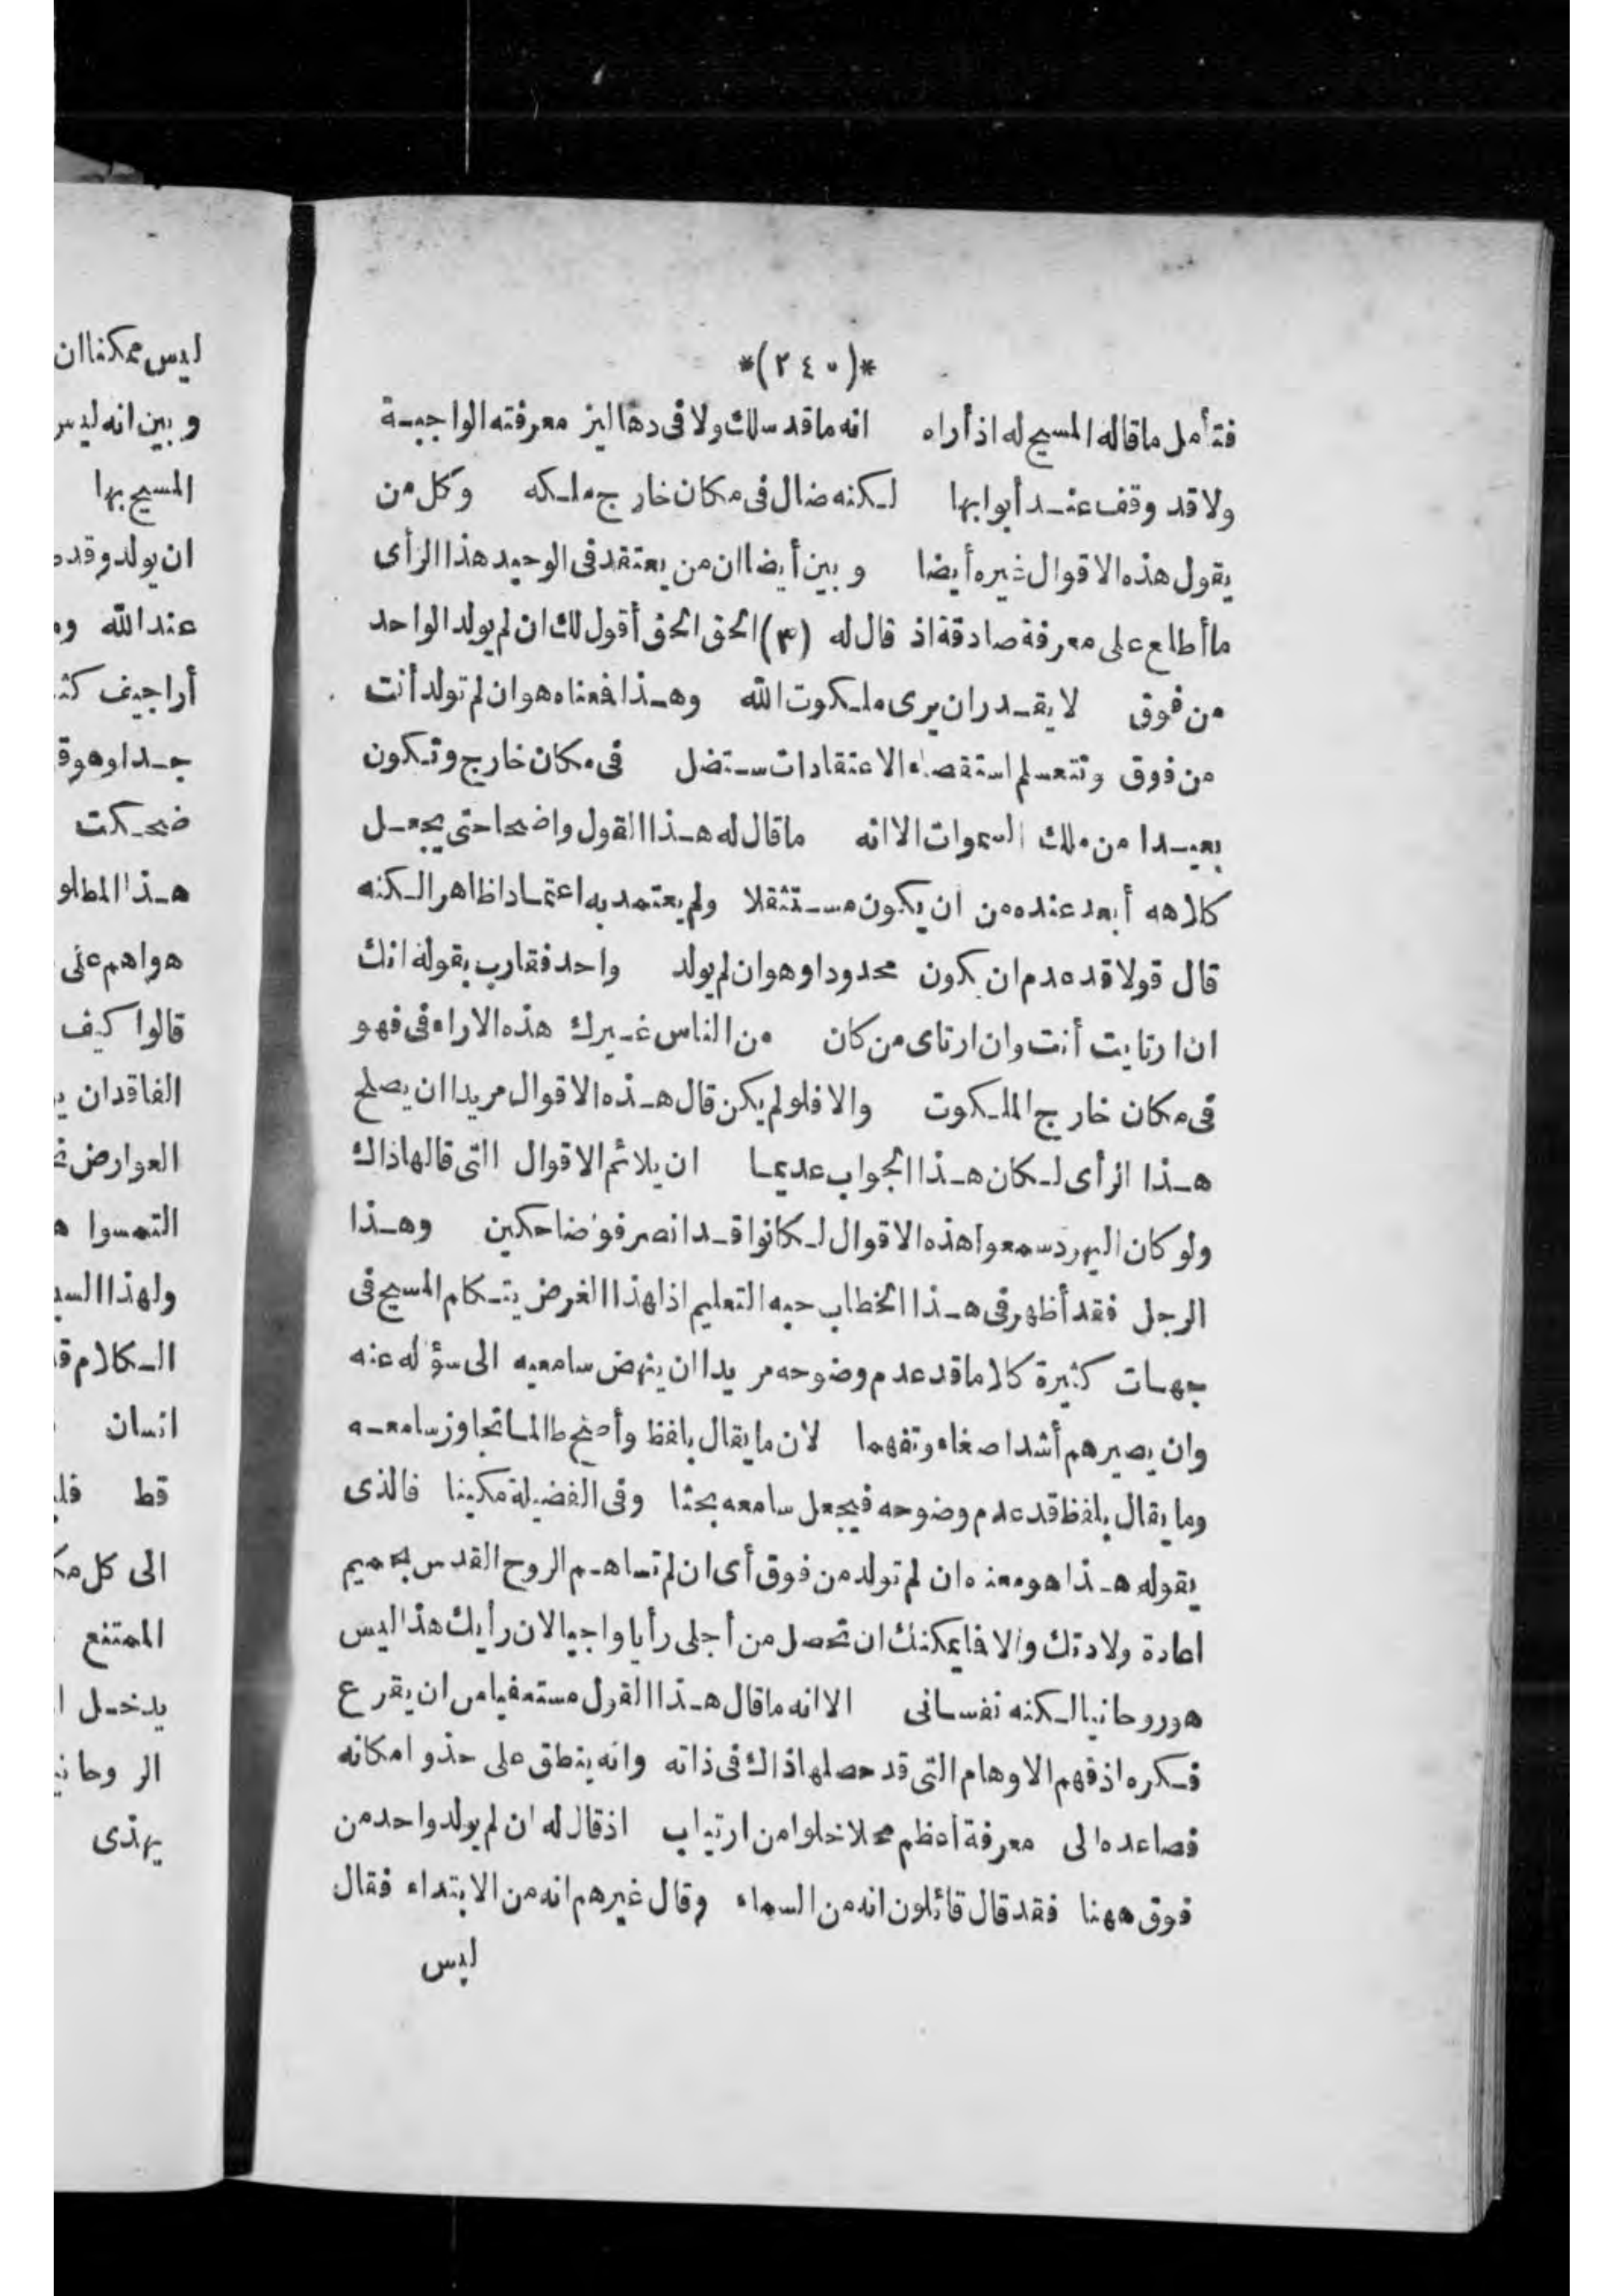 *(٢٤٠)*
فتأمل ماقاله المسيح له اذ أراه انه ماقد سلك ولا فى دهاليز معرفته الواجبة
ولا قد وقف عند أبوابها لكنه ضال فى مكان خارج ملكه وكل من
يقول هذه الاقوال غيره أيضا وبين أيضا ان من يعتقد فى الوحيد هذا الرأى
ما أطلع على معرفة صادقة اذ قال له (٣) الحق الحق أقول لك ان لم يولد الواحد
من فوق لا يقدر ان يرى ملكوت الله وهذا فمعناه هو ان لم تولد أنت
من فوق وتتعلم استقصاء الاعتقادات ستضل فى مكان خارج وتكون
بعيدا من ملك السموات الا انه ماقال له هذا القول واضحا حتى يجعل
كلامه أبعد عنده من ان يكون مستثقلا ولم يعتمد به اعتمادا ظاهرا لكنه
قال قولا قد عدم ان يكون محدودا وهو ان لم يولد واحد فقارب بقوله انك
ان ارتايت أنت وان ارتاى من كان من الناس غيرك هذه الاراء فى فهو
فى مكان خارج الملكوت والا فلو لم يكن قال هذه الاقوال مريدا ان يصلح
هذا الرأى لكان هذا الجواب عديما ان يلائم الاقوال التى قالها ذاك
ولو كان اليهود سمعوا هذه الاقوال لكانوا قد انصرفوا ضاحكين وهذا
الرجل فقد أظهر فى هذا الخطاب حبه التعليم اذ لهذا الغرض يتكلم المسيح فى
جهات كثيرة كلاما قد عدم وضوحه مريدا ان ينهض سامعيه الى سؤاله عنه
وان يصيرهم أشد اصغاء وتفهما لان ما يقال بلفظ واضح طالما تجاوز سامعه
وما يقال بلفظ قد عدم وضوحه فيجعل سامعه بحثا وفى الفضيلة مكينا فالذى
يقوله هذا هو معناه ان لم تولد من فوق أى ان لم تساهم الروح القدس بحميم
اعادة ولادتك والا فما يمكنك ان تحصل من أجلى رأيا واجبا لان رأيك هذا ليس
هو روحانيا لكنه نفسانى الا انه ماقال هذا القول مستعفيا من ان يقرع
فكره اذ فهم الاوهام التى قد حصلها ذاك فى ذاته وانه ينطق على حذو امكانه
فصاعده الى معرفة أعظم محلا خلوا من ارتياب اذ قال له ان لم يولد واحد من
فوق ههنا فقد قال قائلون انه من السماء وقال غيرهم انه من الابتداء فقال
ليس
ليس ممكنا ان
وبين انه ليس
المسيح بها
ان يولد وقد
عند الله
أراجيف
جدا وهو
ضحكت
هذا المطلو
هواهم على
قالوا كيف
الفاقدان
العوارض
التمسوا
ولهذا السب
الكلام
انسان
قط
الى كل
الممتنع
يدخل
الروحان
يهذى